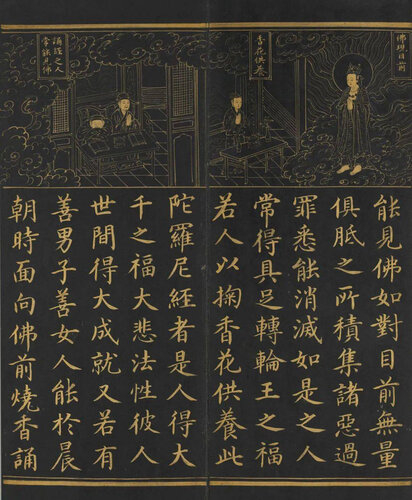 佛現目前
香花供養
能見佛如對目前無量
俱胝之所積集諸惡過
罪悉能消滅如是之人
常得具足轉輪王之福
若人以掬香花供養此
誦之人
常能見佛
陀羅尼經者是人得大
千之福大悲法性彼人
世間得大成就又若有
善男子善女人能於晨
朝時面向佛前燒香誦